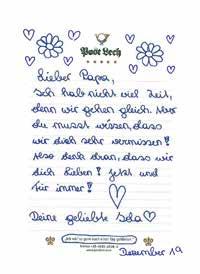 Post Lech
Lieber Papa,
Ich hab nicht viel Zeit,
denn wir gehen gleich. Aber
du musst wissen, dass
wir dich sehr vermissen!
Also denk dran, dass wir
dich lieben! Jetzt und
für immer!
Deine geliebte
Dezember 19